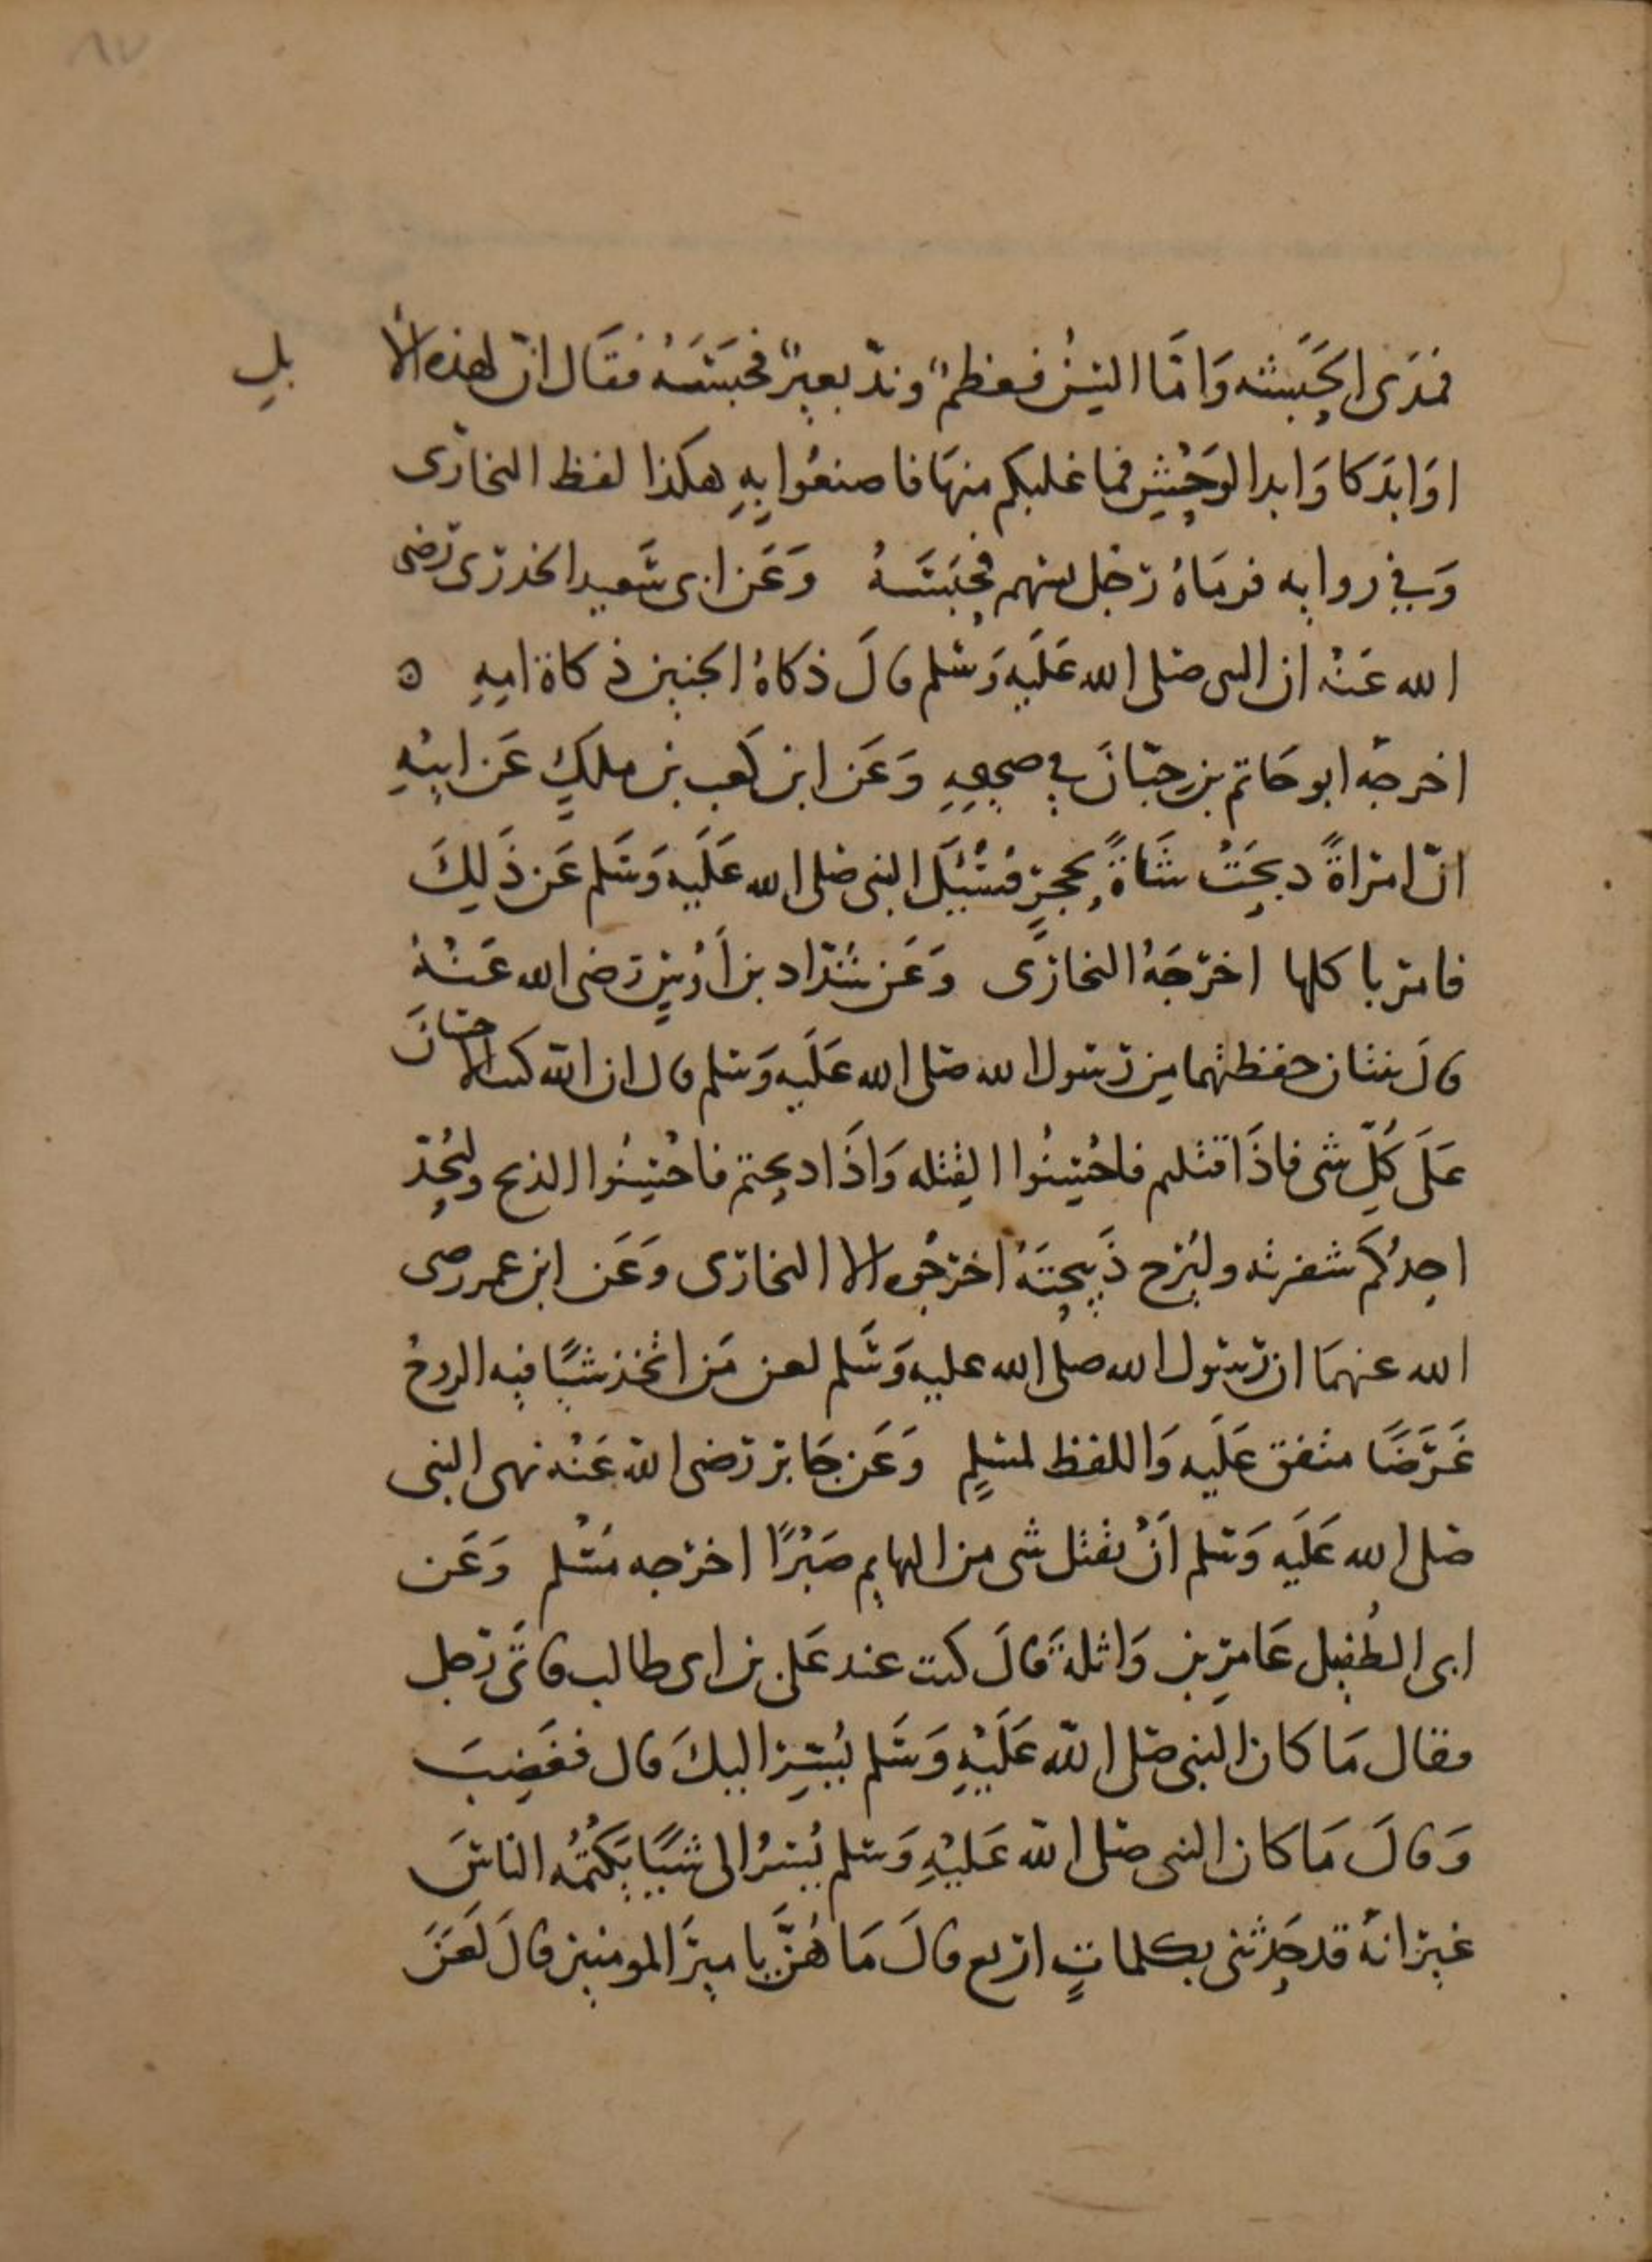 ٨٧
فمدَى الحَبَشه وَامّا السِنُّ فعظمٌ وندّ بعيرٌ فحبَسَهُ فقَال انّ لهذه الا بلِ
اوَابدَ كاوَابد الوَحْشِ فما غلبكم منهَا فاصنعُوا بِهِ هكذا لفظ البخارى
وَفي روايه فرمَاهُ رَجُل منهم فحَبَسَهُ وَعَن ابى سَعيد الخدرى رضى
الله عَنهُ ان النبى صَلى الله عَلَيهِ وَسَلم قالَ ذكاهُ الجنين ذكاة امِهِ ه
اخرجَه ابو حَاتم بن حِبّانَ في صحيحِهِ وَعَن ابن كَعب بن ملكٍ عَن ابيْهِ
انّ امرَاةً دبحَتْ شَاةً بحجرٍ فسُئِلَ النبى صَلى الله عَلَيه وَسَلم عَن ذَلِكَ
فامر باكلها اخرَجَهُ البخارَى وَعَن شدّاد بن أوْسٍ رَضى الله عَنْهُ
قالَ ثنتان حفظتهما مِن رَسول الله صَلى الله عَلَيهِ وَسَلم قال ان الله كتب الاحسَانَ
عَلَى كُلِّ شى فاذَا قتلتم فاحْسِنُوا القِتله وَاذَا دبحتم فاحْسِنُوا الذبح وليُحِدّ
احدُكُم شفرته وليُرح ذَبيحتَهُ اخرَجُوه الا البخارَى وَعَن ابن عمر رضى
الله عنهمَا ان رَسول الله صلى الله عليه وَسَلم لعن مَن اتخذ شيًا فيه الروحُ
غَرَضًا متفق عَلَيه وَاللفظ لمسلمٍ وَعَن جَابر رَضى الله عَنْهُ نهى النبى
صَلى الله عَلَيهِ وَسَلم اَنْ يقتل شى من البهايم صَبْرًا اخرَجه مُسْلم وَعَن
ابى الطُفيل عَامِر بن وَاثلةَ قالَ كنت عند عَلى بن ابى طالب فاتى رَجل
فقال مَا كان النبى صَلى الله عَلَيْهِ وَسَلم يُسِرّ اليكَ قال فغَضِبَ
وَقالَ مَا كان النبى صَلى الله عَلَيْهِ وَسَلم يُسرُ الى شيًا يَكتُمُه الناسَ
غير انهُ قد حَدثنى بكلماتٍ اربع قالَ مَا هُنَّ يا ميرَ المومنين قالَ لَعَنَ